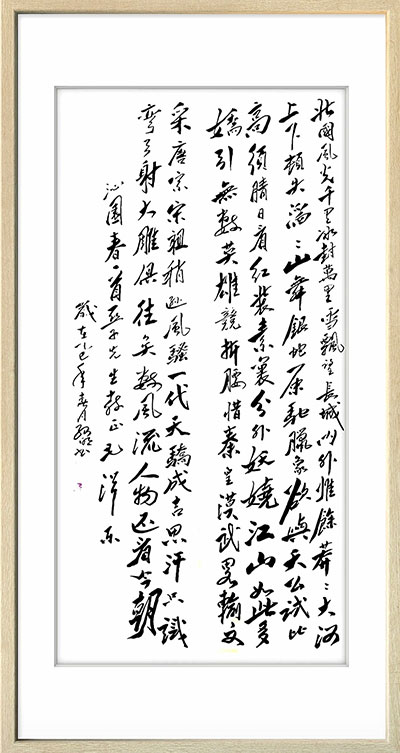 北國風光千里冰封萬里雪飄望長城内外惟餘莽〻大河
上下頓失滔〻山舞銀蛇原馳臘象欲與天公試比
高須晴日看紅裝素裹分外妖嬈江山如此多
嬌引無數英雄競折腰惜秦皇漢武畧輸文
采唐宗宋祖稍遜風騷一代天驕成吉思汗只識
彎弓射大雕俱往矣數風流人物还看今朝
沁園春一首亞子先生教正毛澤東
歲在乙巳年春月